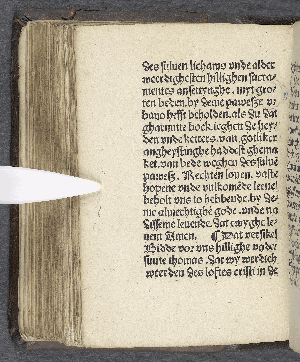 des suluen lichams vnde alder
werdighesten hillighen sacra-
mentes ansettynghe. myt gro-
ten beden. by deme pawese vr-
bano hefst beholden. als du dat
ghantze boek ieghen de hey-
den vnde ketters. van gotliker
anghestinghe haddest ghema-
ket. van bede weghen des sulue
pawes. Rechten louen. vaste
hopene vnde vulkomede leeue
beholt vns to hebbende. by de-
me almechtighe gode. vnde na
disseme leuende. dat ewyghe le-
uent Amen. ¶ Dat versikel
Bidde vor vns hillighe vader
sunte thomas. Dat wy werdich
werden des loftes cristi in de